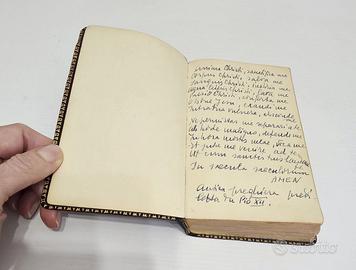 Anima Christi, sanctifica me
Corpus Christi, salva me
Sanguis Christi, inebria me
Aqua lateris Christi, lava me
Passio Christi, conforta me
O bone Jesu, exaudi me
Intra tua vulnera, absconde
Ne permittas me separari a te
Ab hoste maligno, defende me
In hora mortis meae, voca me
Et jube me venire ad te
Ut cum sanctis tuis laudem
In saecula saeculorum
AMEN
Antica preghiera predi
letta da Pio XII.
subito